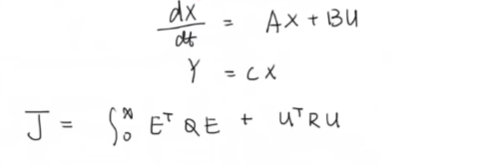 dX/dt = AX + BU
Y = CX
J = ∫₀^∞ EᵀQE + UᵀRU